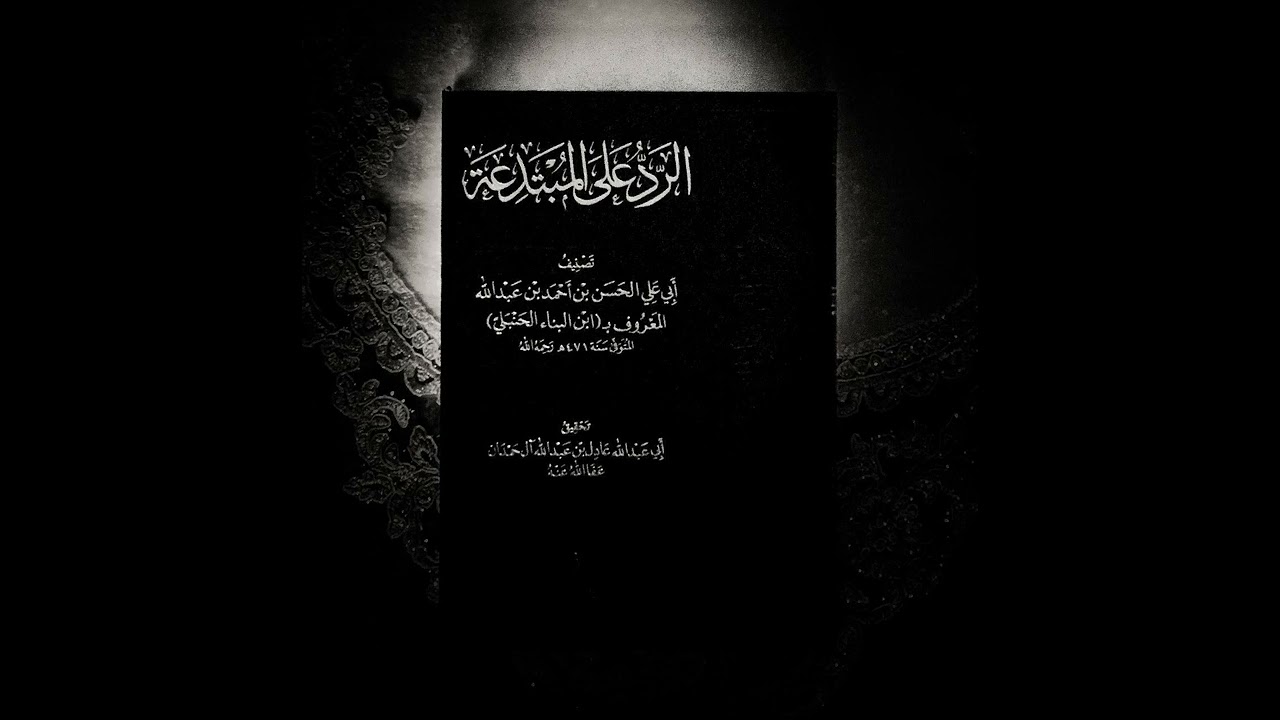 الرَّدُّ عَلَى المُبْتَدِعَة
تَصْنِيفُ
أَبِي عَلِي الحَسَن بْن أَحْمَد بْن عَبْدالله
المَعْرُوف بـ (ابْن البناء الحَنْبَلِيّ)
المُتَوَفَّى سَنَة ٤٧١هـ رَحِمَهُ اللهُ
تَحْقِيقُ
أَبِي عَبْدالله عَادِل بْن عَبْدالله آل حَمْدَان
عَفَا اللهُ عَنْهُ